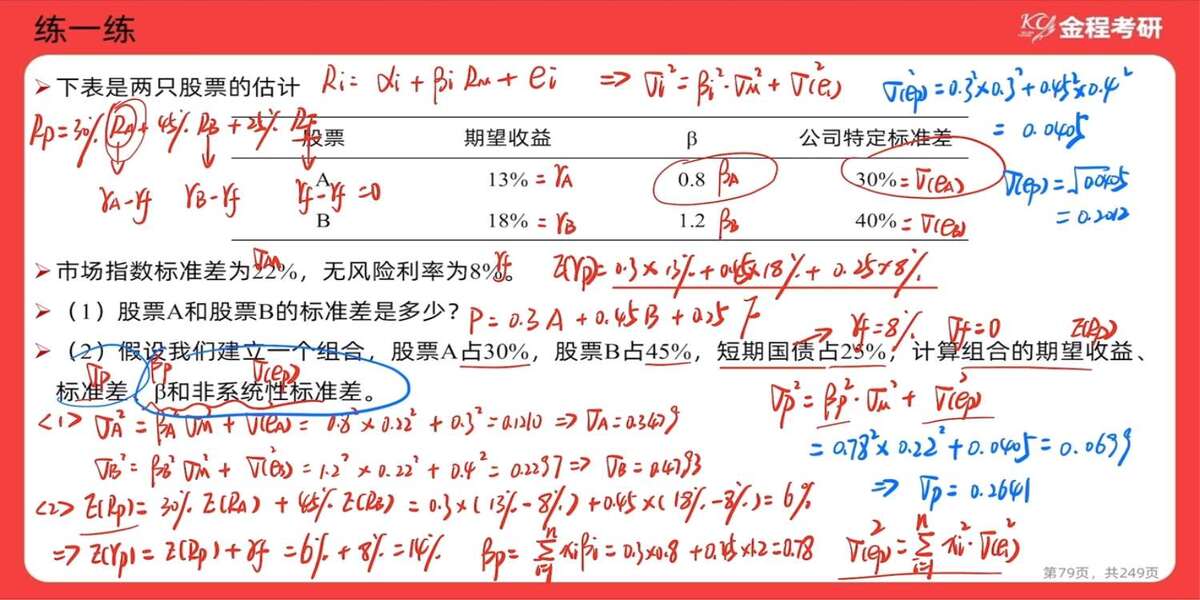 练一练
KC 金程考研
➢下表是两只股票的估计 Ri = αi + βi RM + ei ⇒ σi² = βi²·σM² + σ²(ei)
σ²(ep) = 0.3²×0.3² + 0.45²×0.4²
= 0.0405
σ(ep) = √0.0405
= 0.2012
Rp = 30% RA + 45% RB + 25% RF
rA-rf rB-rf rf-rf = 0
股票 期望收益 β 公司特定标准差
A 13% = rA 0.8 βA 30% = σ(eA)
B 18% = rB 1.2 βB 40% = σ(eB)
σM rf
➢市场指数标准差为22%，无风险利率为8%。 E(rp) = 0.3×13% + 0.45×18% + 0.25×8%
➢（1）股票A和股票B的标准差是多少？ P = 0.3A + 0.45B + 0.25F
→ rf = 8% σf = 0 E(Rp)
➢（2）假设我们建立一个组合，股票A占30%，股票B占45%，短期国债占25%，计算组合的期望收益、
σp βp σ(ep)
标准差、β和非系统性标准差。
σp² = βp²·σM² + σ²(ep)
= 0.78²×0.22² + 0.0405 = 0.0699
⇒ σp = 0.2641
<1> σA² = βA² σM² + σ²(eA) = 0.8²×0.22² + 0.3² = 0.1210 ⇒ σA = 0.3479
σB² = βB² σM² + σ²(eB) = 1.2²×0.22² + 0.4² = 0.2297 ⇒ σB = 0.4793
<2> E(Rp) = 30% E(RA) + 45% E(RB) = 0.3×(13%-8%) + 0.45×(18%-8%) = 6%
⇒ E(rp) = E(Rp) + rf = 6% + 8% = 14% βp = Σ(i=1→n) xiβi = 0.3×0.8 + 0.45×1.2 = 0.78 σ²(ep) = Σ(i=1→n) xi²·σ²(ei)
第79页，共249页